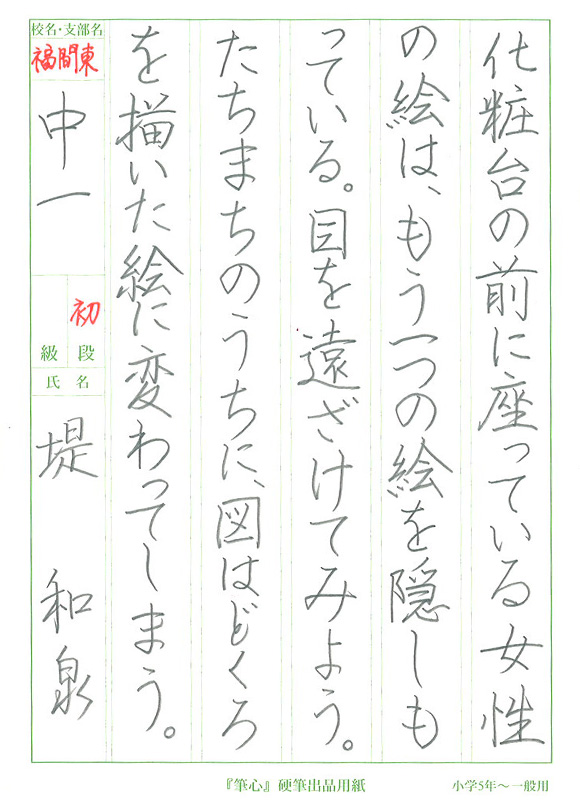 化粧台の前に座っている女性
の絵は、もう一つの絵を隠しも
っている。目を遠ざけてみよう。
たちまちのうちに、図はどくろ
を描いた絵に変わってしまう。
校名・支部名
福間東
中一
初
級 段
氏 名
堤 和泉
『筆心』硬筆出品用紙
小学5年～一般用